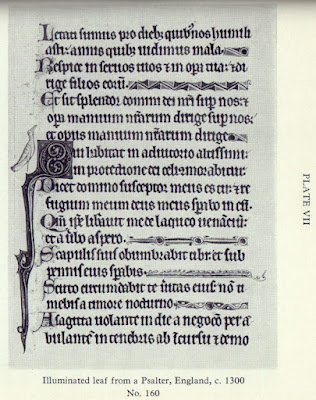 Letati sumus pro dieb; quib; nos humili
asti: annis quib; uidimus mala.
Respice in seruos tuos & in opa tua: & di
rige filios eorum.
Et sit splendor domini dei nri sup nos: &
opa manuum nrarum dirige sup nos:
et opus manuum nrarum dirige.
Qui habitat in adiutorio altissimi:
in protectione dei celi morabitur.
Dicet domino susceptor meus es tu: & re
fugium meum deus meus spabo in eu.
Qm ipse libauit me de laqueo uenantiu:
et a ubo aspero.
Scapulis suis obumbrabit tibi: et sub
pennis eius spabis.
Scuto circumdabit te ueritas eius: non ti
mebis a timore nocturno.
A sagitta uolante in die a negocio per a
bulante in tenebris ab incursu & demo
PLATE VII
Illuminated leaf from a Psalter, England, c. 1300
No. 160